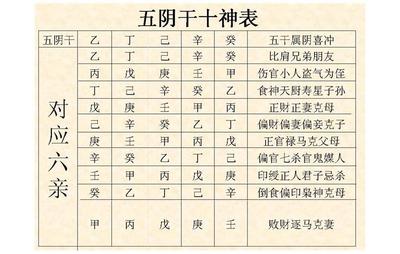 五阴干十神表
五阴干 乙 丁 己 辛 癸 五干属阴喜冲
对应六亲
乙 丁 己 辛 癸 比肩兄弟朋友
丙 戊 庚 壬 甲 伤官小人盗气为侄
丁 己 辛 癸 乙 食神天厨寿星子孙
戊 庚 壬 甲 丙 正财正妻克母
己 辛 癸 乙 丁 偏财偏妻偏妾克子
庚 壬 甲 丙 戊 正官禄马克父母
辛 癸 乙 丁 己 偏官七杀官鬼媒人
壬 甲 丙 戊 庚 印绶正人君子忌杀
癸 乙 丁 己 辛 倒食偏印枭神克母
甲 丙 戊 庚 壬 败财逐马克妻